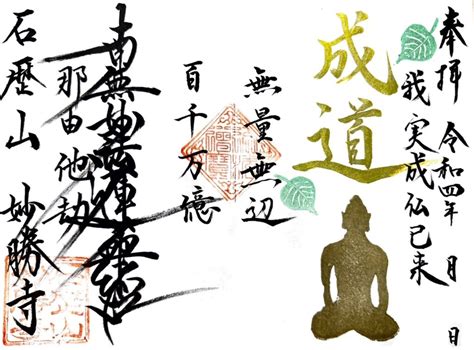 奉拝 令和四年 月 日
我実成仏已来
成道
無量無辺
百千万億
那由他劫
南無妙法蓮華経
石歴山 妙勝寺